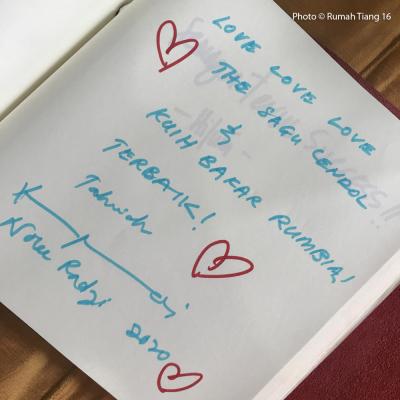 Photo © Rumah Tiang 16
LOVE LOVE LOVE
THE SAGU CENDOL
&
KUIH BAKAR RUMBIA!
TERBAIK!
Tahniah
2020